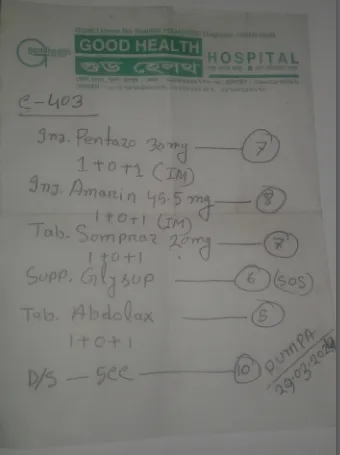 GOOD HEALTH
HOSPITAL
শুভ হেলথ
C-403
Inj. Pentazo 30mg — 7
1+0+1 (IM)
Inj. Amarin 45.5mg — 8
1+0+1 (IM)
Tab. Sompraz 20mg — 7
1+0+1
Supp. Glysup — 6 (SOS)
Tab. Abdolax — 5
1+0+1
D/S — 5CC — 10
RUMPA
29.03.2024